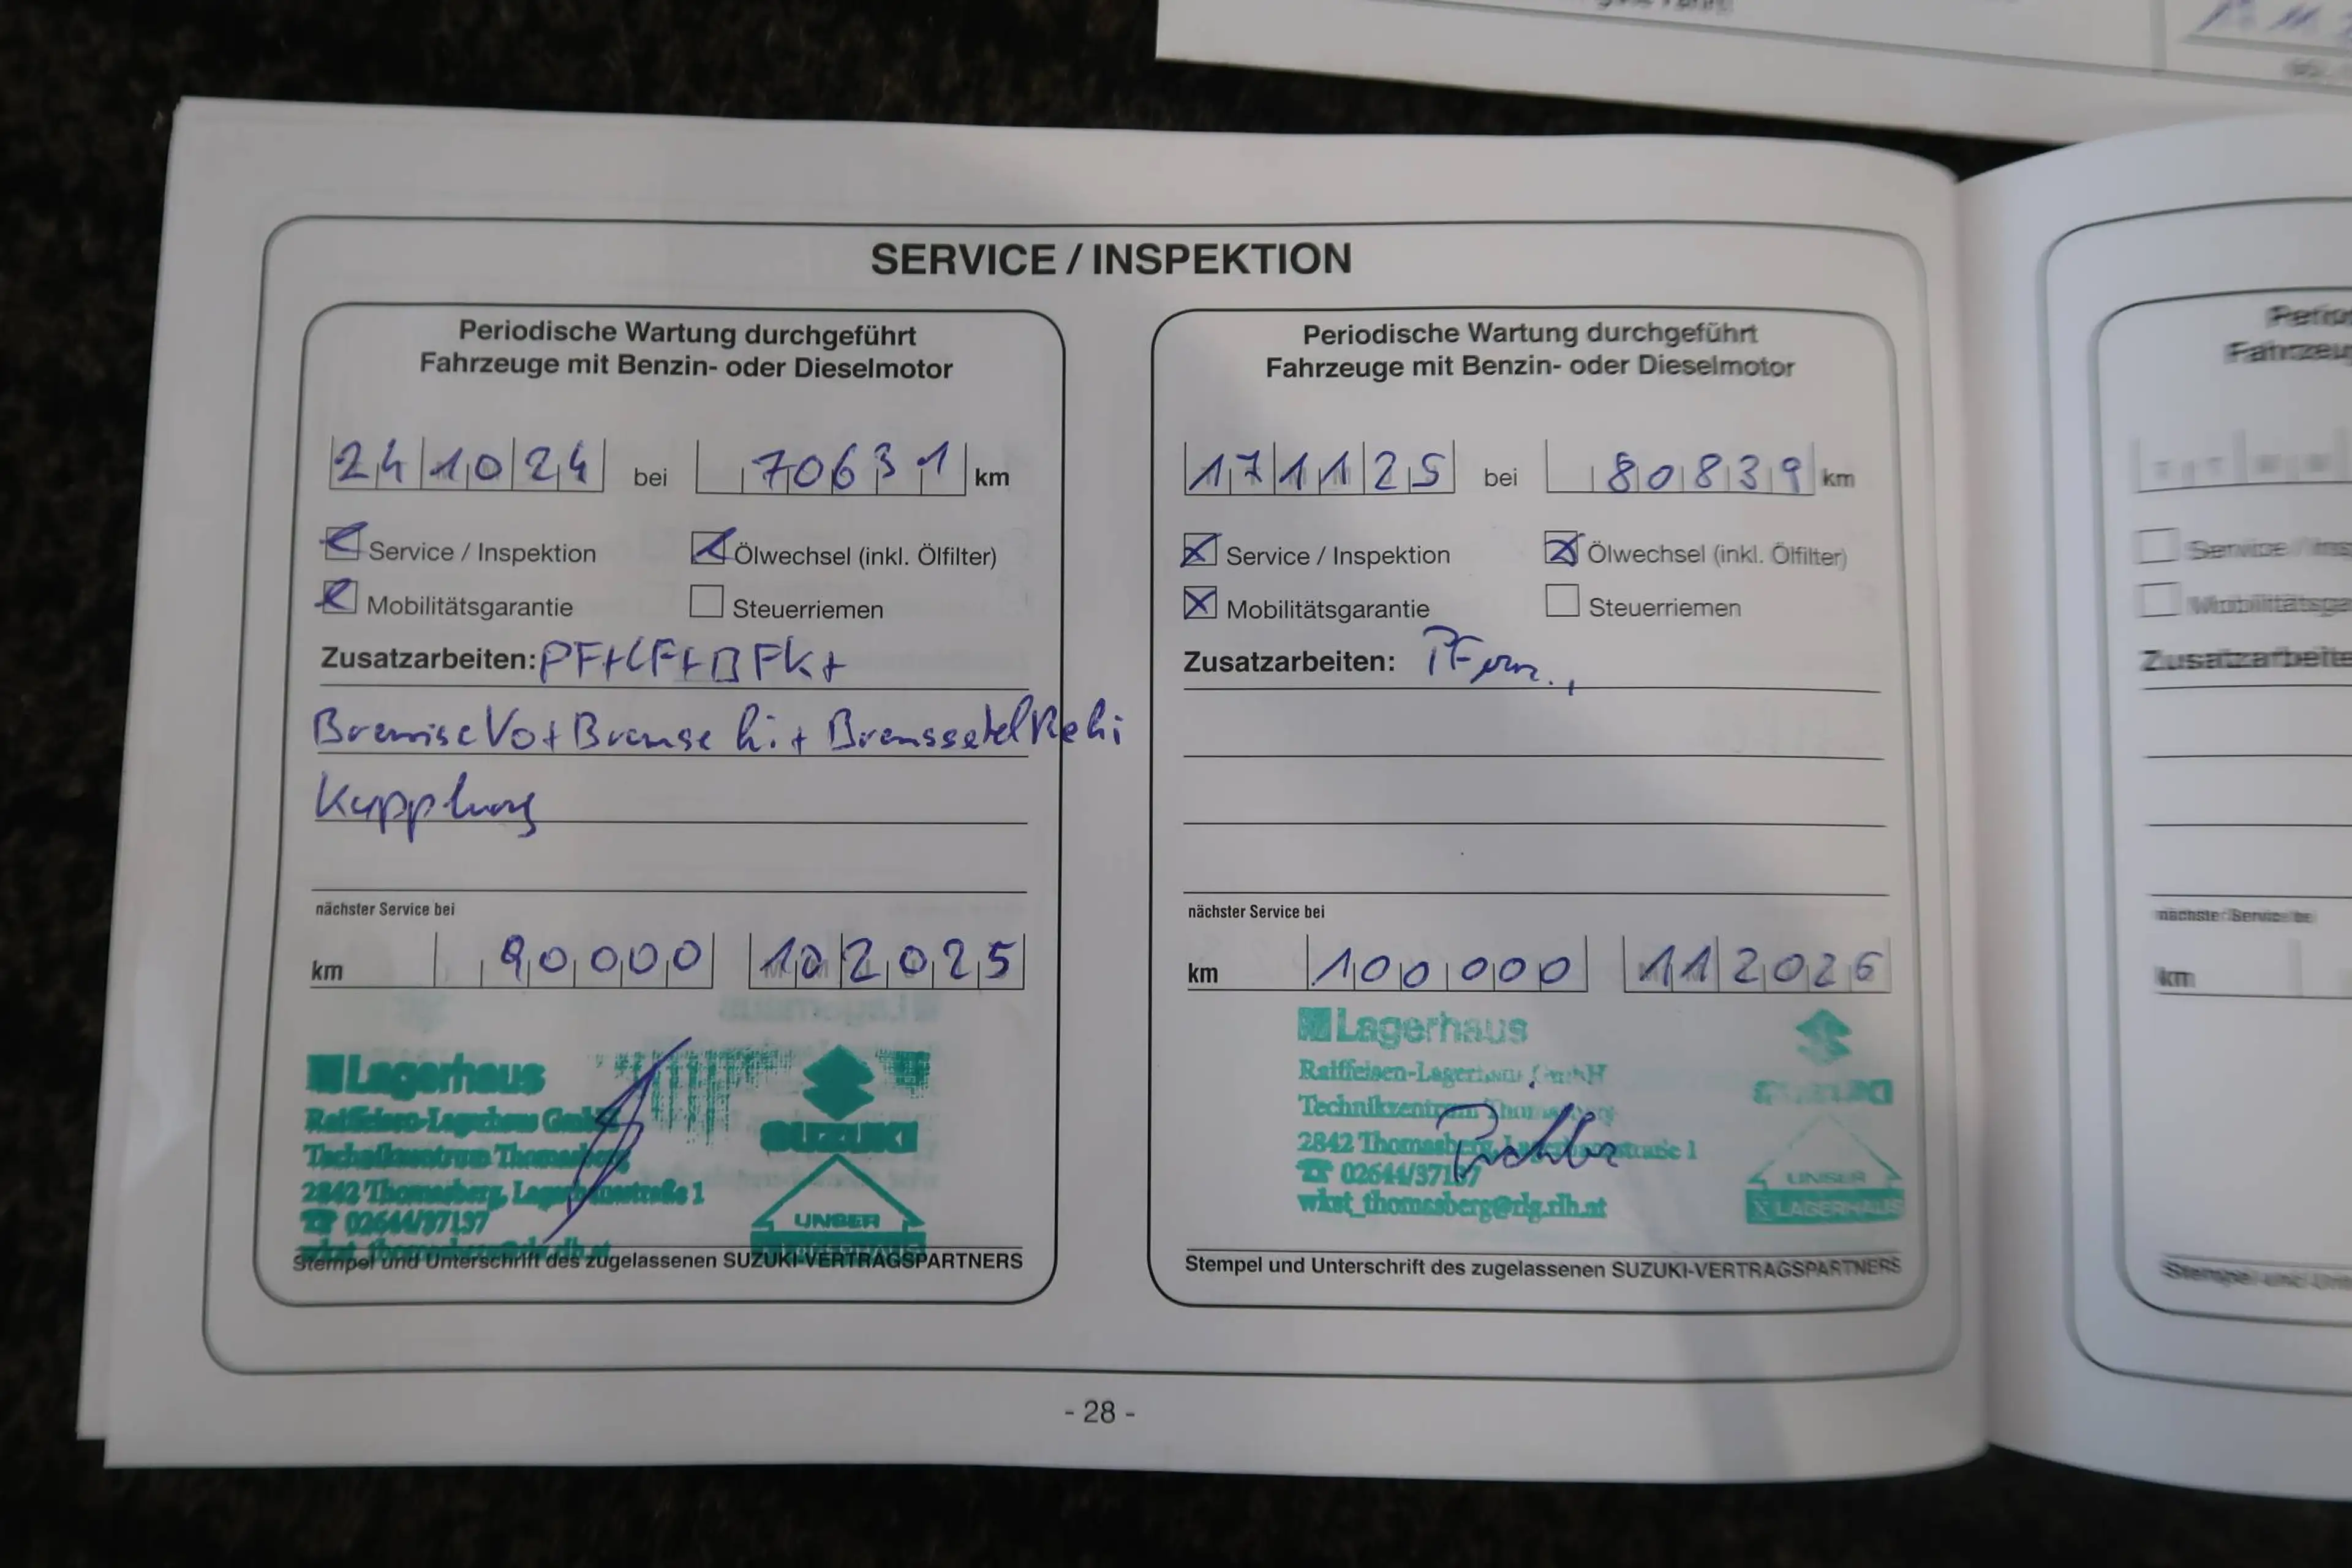 SERVICE / INSPEKTION
Periodische Wartung durchgeführt
Fahrzeuge mit Benzin- oder Dieselmotor
24 10 24 bei 70631 km
Service / Inspektion
Ölwechsel (inkl. Ölfilter)
Mobilitätsgarantie
Steuerriemen
Zusatzarbeiten: PF+LF+
Bremse Vo+Bremse hi+
Kupplung
nächster Service bei
km 90000 10 2025
Lagerhaus
Raiffeisen-Lagerhaus GmbH
Technikzentrum Thomasberg
2842 Thomasberg, Lagerhausstraße 1
☎ 02644/37137
SUZUKI
UNSER
Stempel und Unterschrift des zugelassenen SUZUKI-VERTRAGSPARTNERS
Periodische Wartung durchgeführt
Fahrzeuge mit Benzin- oder Dieselmotor
17 11 25 bei 80839 km
Service / Inspektion
Ölwechsel (inkl. Ölfilter)
Mobilitätsgarantie
Steuerriemen
Zusatzarbeiten:
nächster Service bei
km 100000 11 2026
Lagerhaus
Raiffeisen-Lagerhaus GmbH
Technikzentrum Thomasberg
2842 Thomasberg, Lagerhausstraße 1
☎ 02644/37137
wkst_thomasberg@rlg.rlh.at
SUZUKI
UNSER
LAGERHAUS
Stempel und Unterschrift des zugelassenen SUZUKI-VERTRAGSPARTNERS
- 28 -
Zusatzarbeite
nächster Service be
km